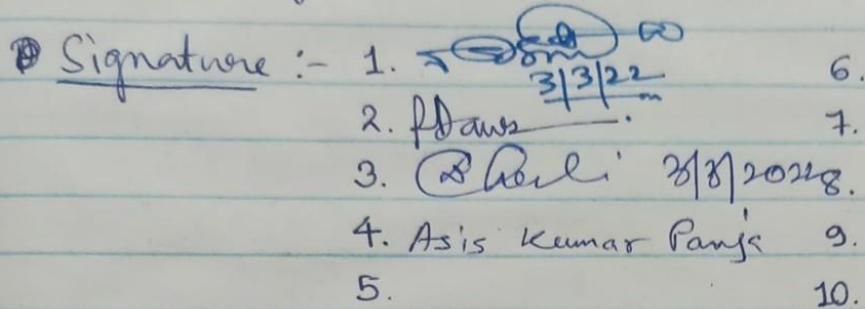 Signature :- 1. 6.
3/3/22
2. 7.
3. 3/3/2022 8.
4. Asis Kumar Panja 9.
5. 10.